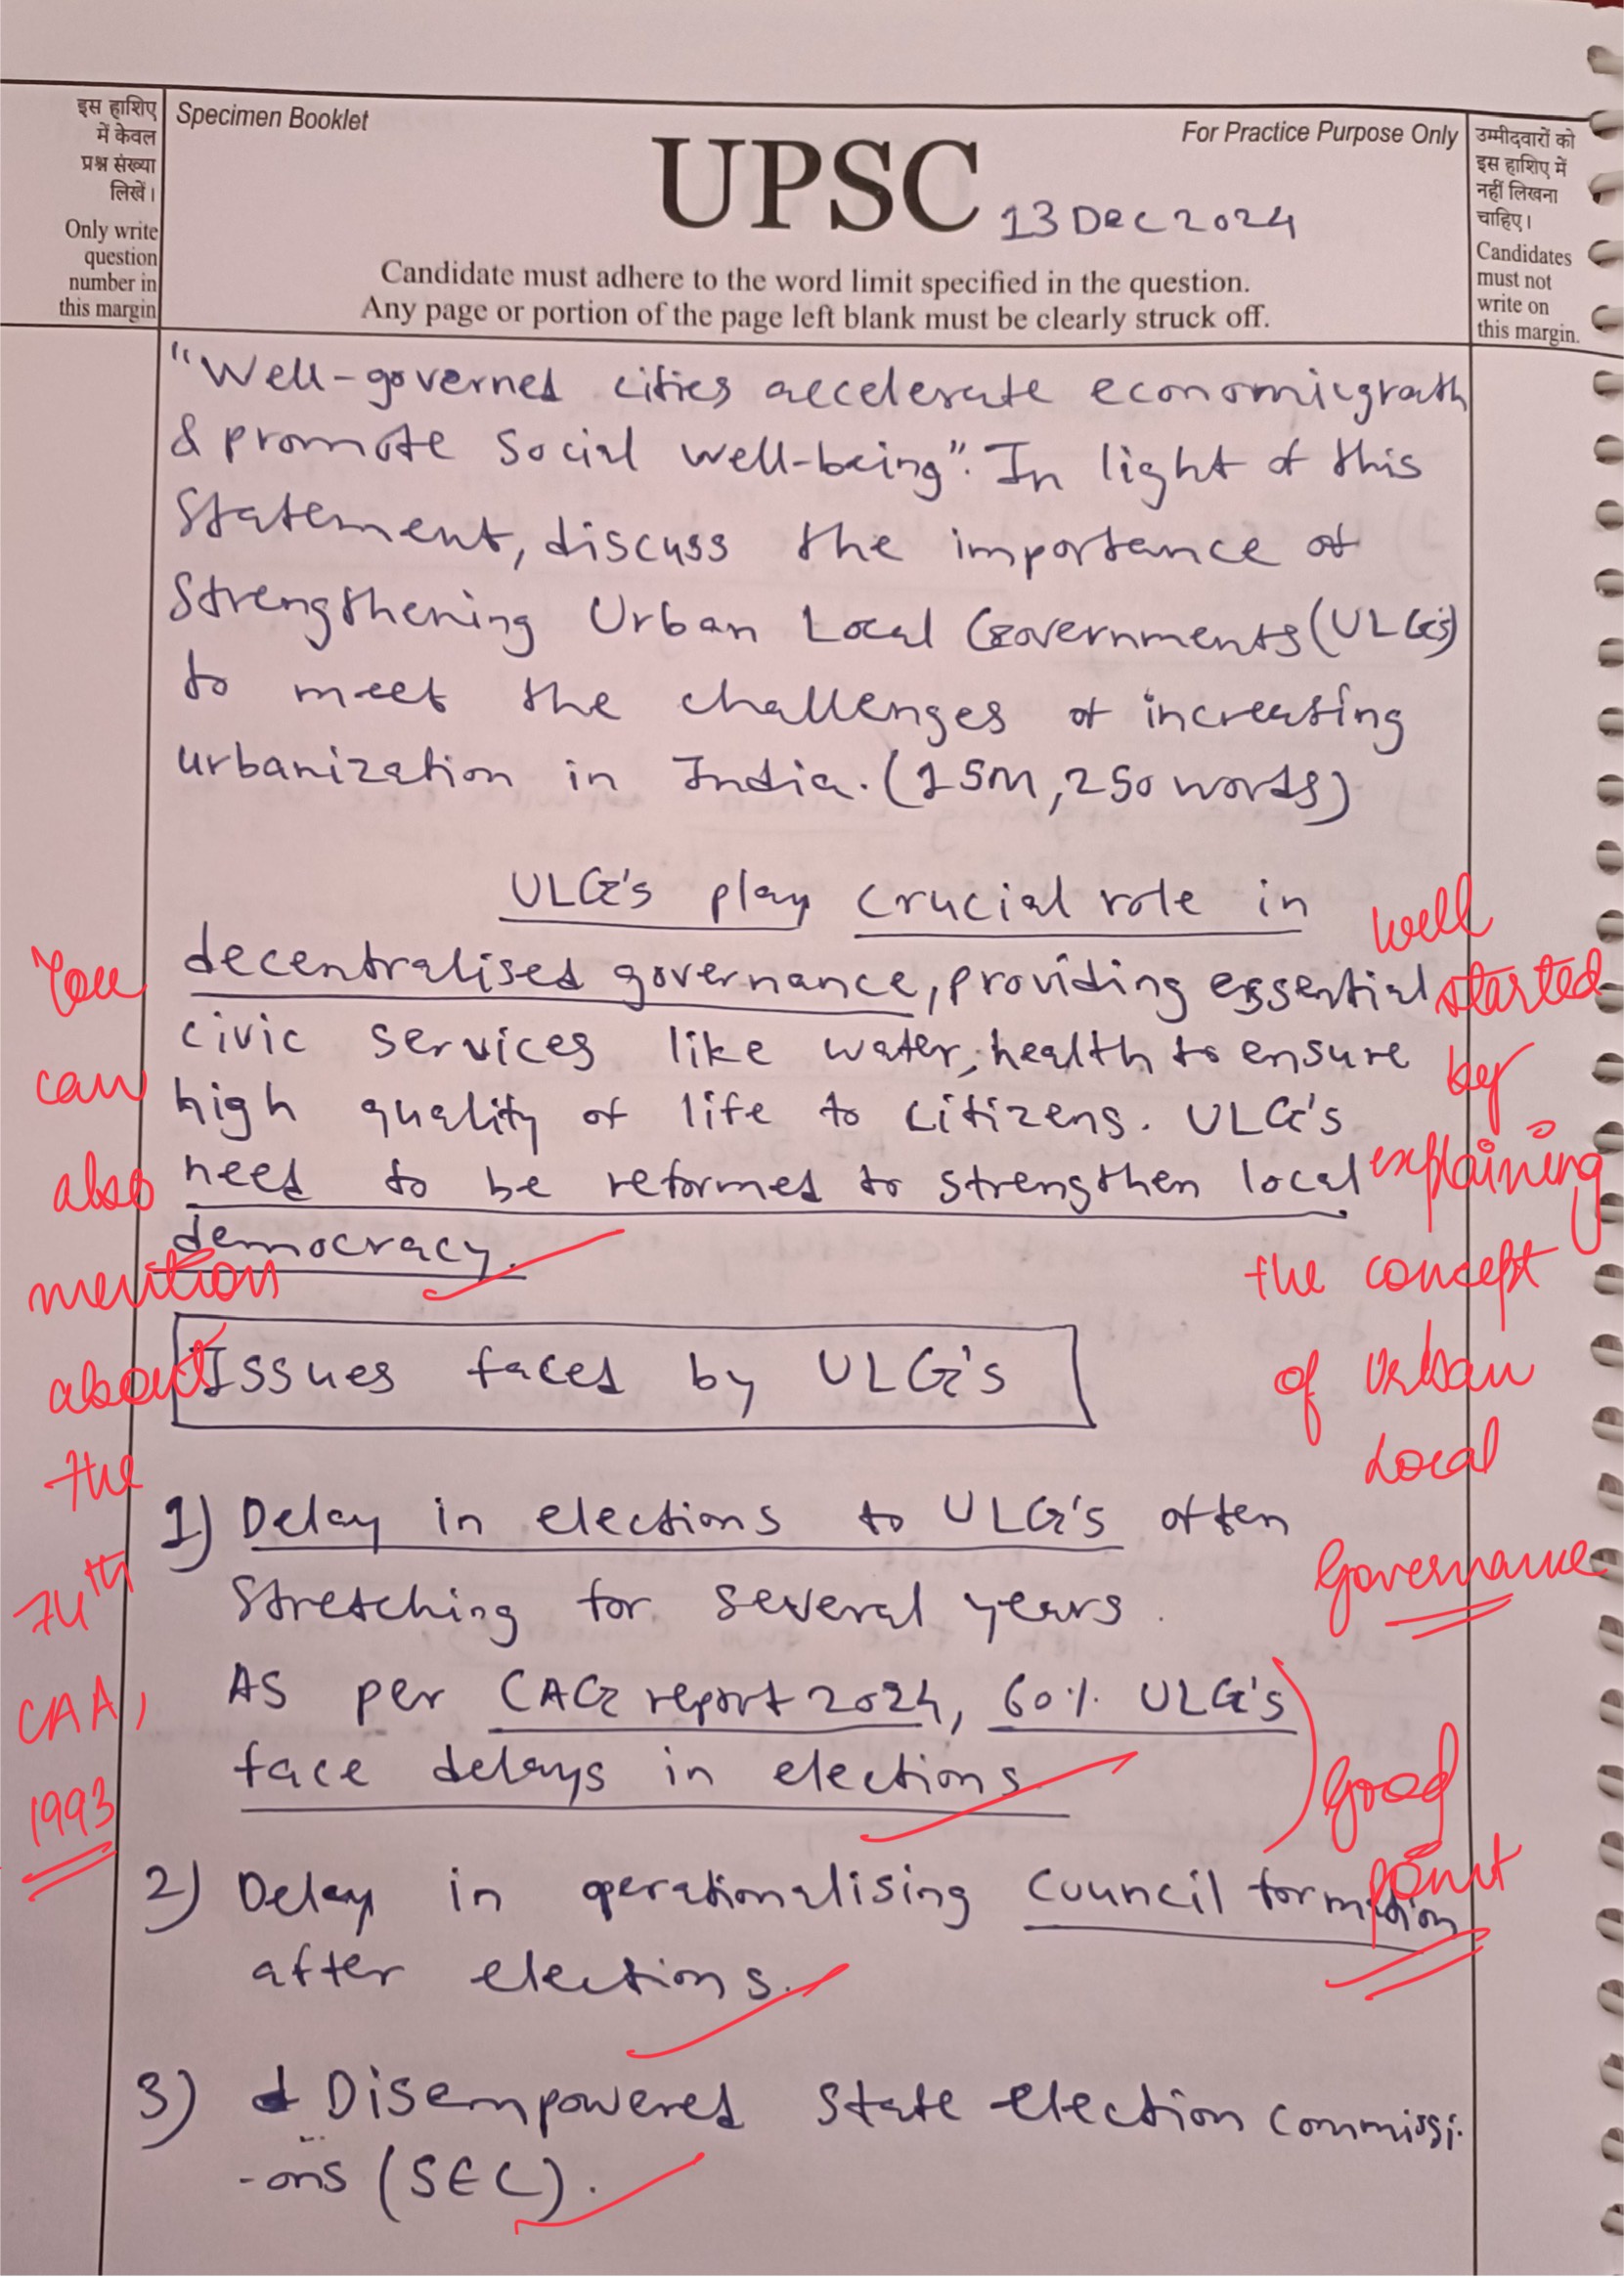 इस हाशिए
में केवल
प्रश्न संख्या
लिखें।
Only write
question
number in
this margin
Specimen Booklet
For Practice Purpose Only
UPSC
13 Dec 2024
Candidate must adhere to the word limit specified in the question.
Any page or portion of the page left blank must be clearly struck off.
उम्मीदवारों को
इस हाशिए में
नहीं लिखना
चाहिए।
Candidates
must not
write on
this margin.
"Well-governed cities accelerate economic growth
& promote social well-being". In light of this
Statement, discuss the importance of
Strengthening Urban Local Governments (ULG's)
to meet the challenges of increasing
urbanization in India. (15m, 250 words)
ULG's play crucial role in
decentralised governance, providing essential
civic services like water, health to ensure
high quality of life to citizens. ULG's
need to be reformed to strengthen local
democracy.
Issues faced by ULG's
1) Delay in elections to ULG's often
Stretching for several years.
As per CAG report 2024, 60% ULG's
face delays in elections.
2) Delay in operationalising council formation
after elections.
3) Disempowered State election commissi-
-ons (SEC).
You
can
also
mention
about
the
74th
CAA,
1993
well
started
by
explaining
the concept
of Urban
Local
Governance
Good
point